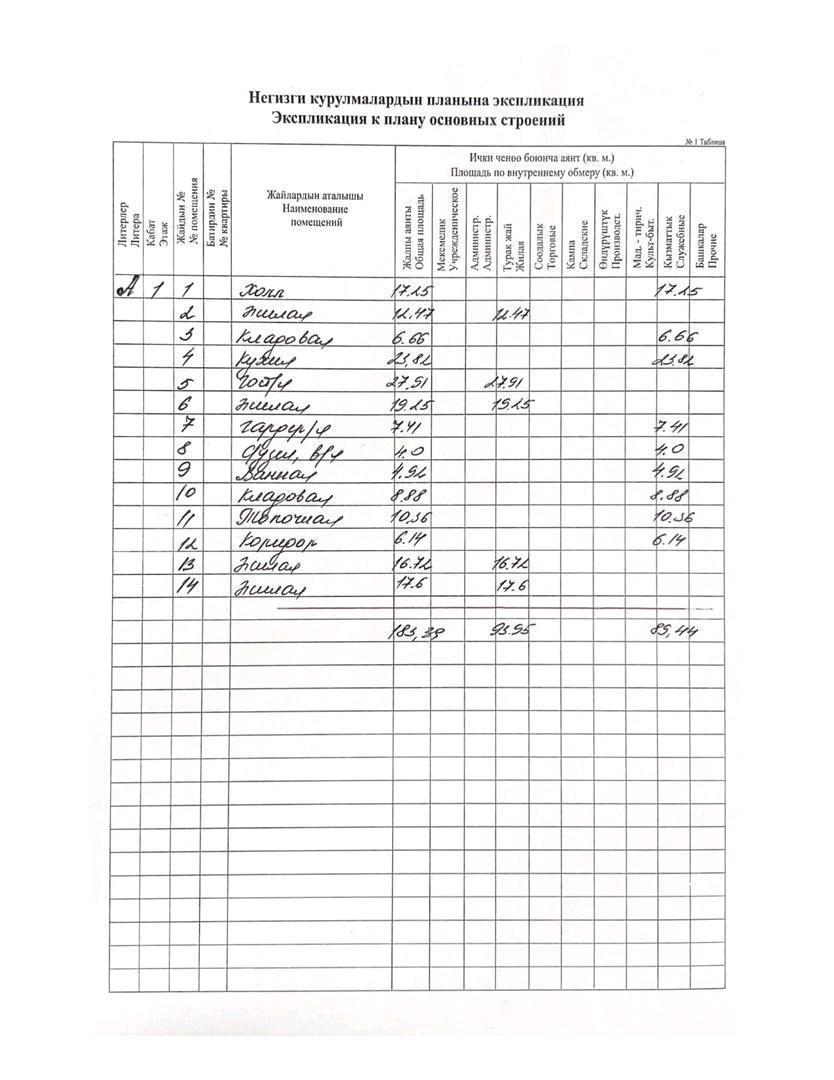 Негизги курулмалардын планына экспликация
Экспликация к плану основных строений
№ 1 Таблица
Литерлер
Литера
Кабат
Этаж
Жайдын №
№ помещения
Батирдин №
№ квартиры
Жайлардын аталышы
Наименование
помещений
Ички ченөө боюнча аянт (кв. м.)
Площадь по внутреннему обмеру (кв. м.)
Жалпы аянты
Общая площадь
Мекемелик
Учрежденическое
Администр.
Администр.
Турак жай
Жилая
Соодалык
Торговые
Кампа
Складские
Өндүрүштүк
Производст.
Мад. - тирич.
Культ-быт.
Кызматтык
Служебные
Башкалар
Прочие
А 1 1 Холл 17.25 17.25
2 Жилая 12,47 12.47
3 Кладовая 6.66 6.66
4 Кухня 23,82 23.82
5 Гост/я 27.91 27.91
6 Жилая 19.25 19.25
7 гардер/я 7.41 7.41
8 4.0
9 Ванная 4.92 4.92
10 Кладовая 8.88 8.88
11 Топочная 10,36 10.36
12 Коридор 6.14 6.14
13 Жилая 16.72 16.72
14 Жилая 17.6 17.6
183,39 93.95 89,44